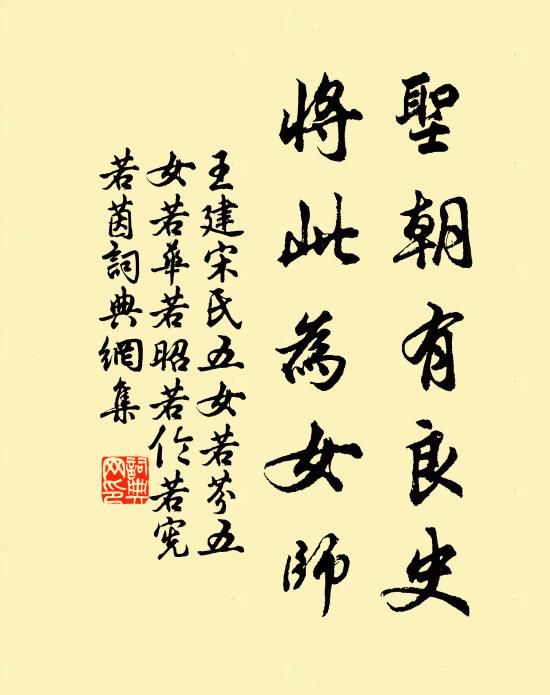 聖朝有良史
將此為女師
王建宋氏五女若芬五
女若華若昭若伦若宪
若茵詞典網集
詞典网印